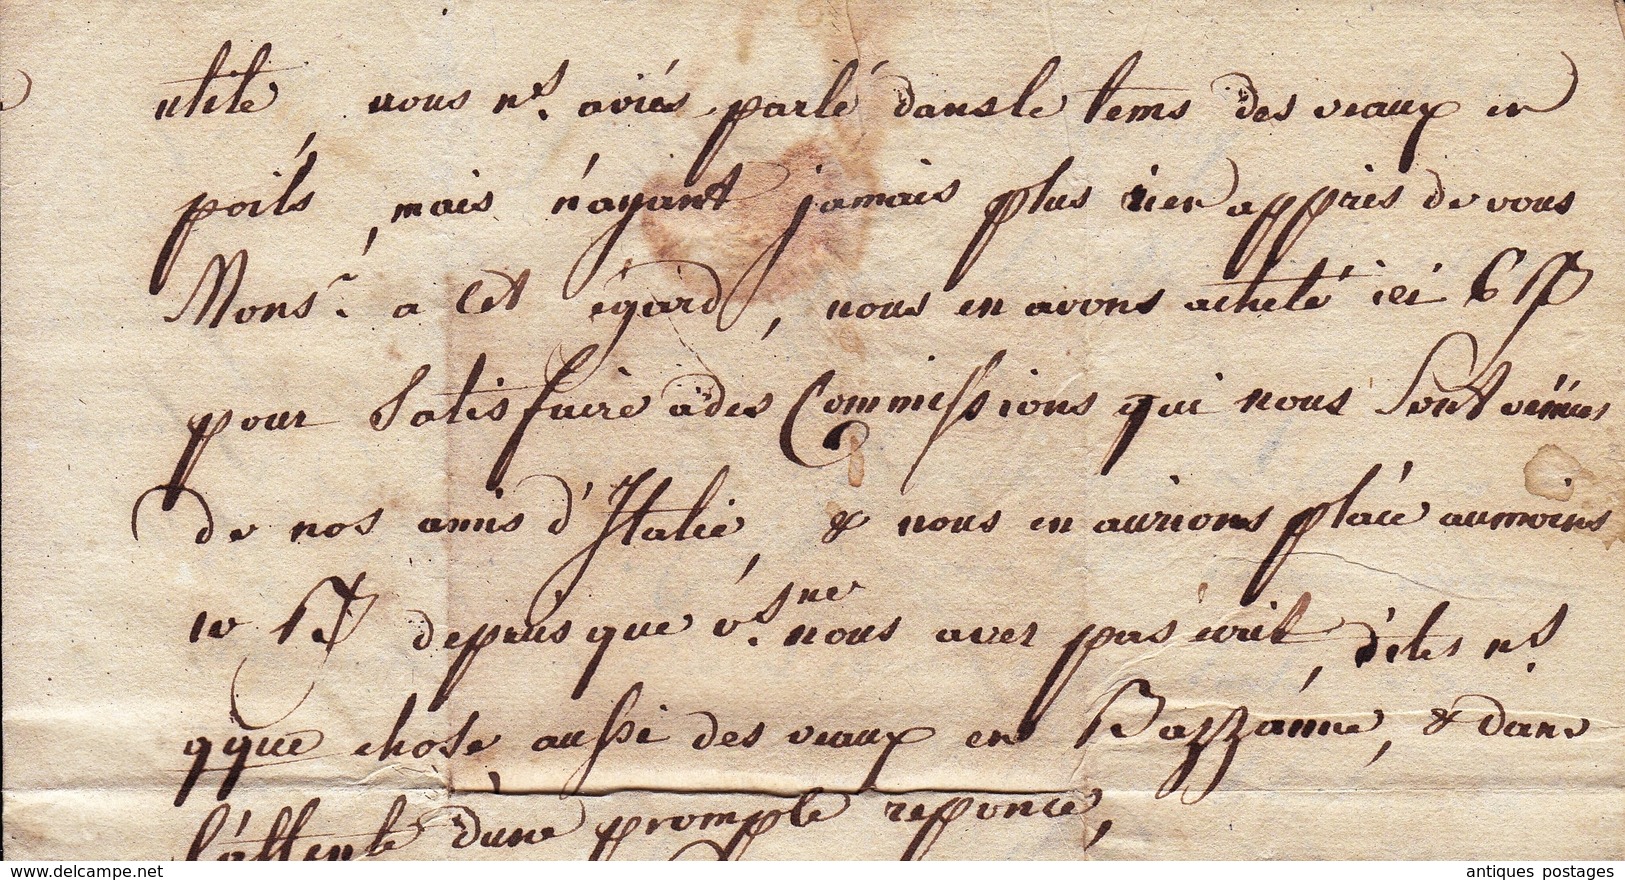 utile, vous ns. aviés parlé dans le tems des veaux en
poils, mais n'ayant jamais plus rien appris de vous
Monsr. a cet égard, nous en avons acheté ici 6
pour Satisfaire a des Commissions qui nous Sont vennues
de nos amis d'Italie, & nous en aurions placé au moins
10 depuis que vs. ne nous avez pas écrit, dites ns.
qque chose, aussi des veaux en Bazzánne, & dans
l'attente dune prompte reponce,
delcampe.net
antiques postages